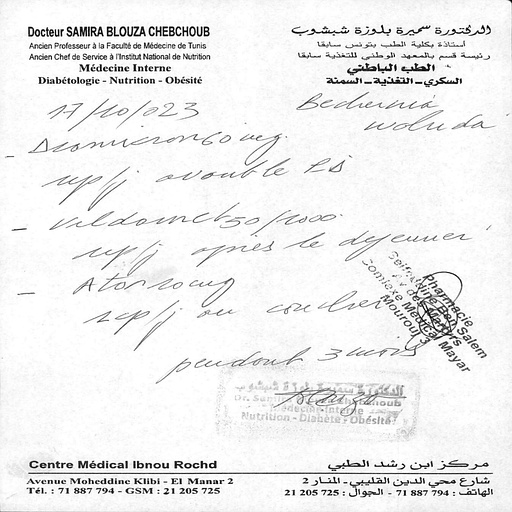 Docteur SAMIRA BLOUZA CHEBCHOUB
Ancien Professeur à la Faculté de Médecine de Tunis
Ancien Chef de Service à l'Institut National de Nutrition
Médecine Interne
Diabétologie - Nutrition - Obésité
الدكتورة سميرة بلوزة شبشوب
أستاذة بكلية الطب بتونس سابقا
رئيسة قسم بالمعهد الوطني للتغذية سابقا
الطب الباطني
السكري - التغذية - السمنة
17/10/023
- Diamicron 60 mg
avant le
- Vildamet 50/1000
1cp/j après le déjeuner
- Ator 20mg
1cp/j au coucher
pendant 3 mois
Pharmacie
Seifeddine Ben Salem
Av des Martyrs
Complexe Médical Mayar
Mourouj 3
الدكتورة سميرة بلوزة شبشوب
Médecine Interne
Nutrition - Diabète - Obésité
Centre Médical Ibnou Rochd
Avenue Moheddine Klibi - El Manar 2
Tél. : 71 887 794 - GSM : 21 205 725
مركز ابن رشد الطبي
شارع محي الدين القليبي - المنار 2
الهاتف : 794 887 71 - الجوال : 725 205 21